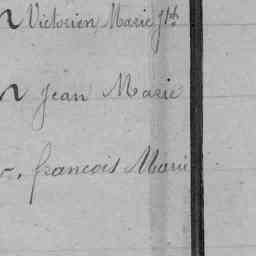 Victorien, Marie Jph
Jean Marie
françois Marie